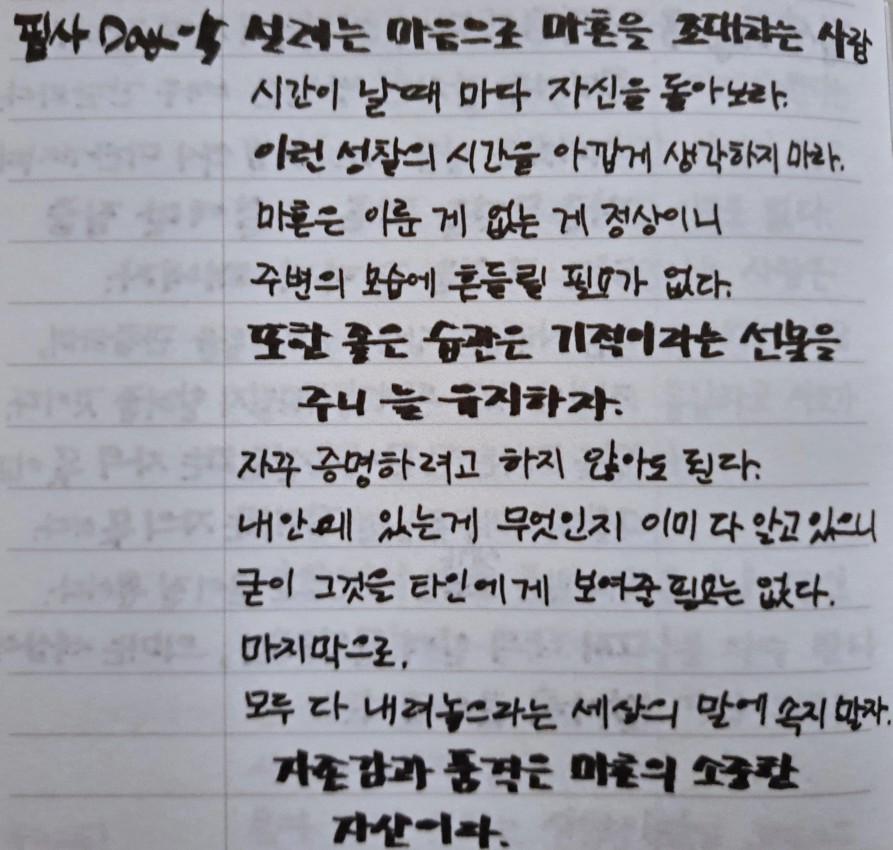 필사 Day-5 설레는 마음으로 마흔을 초대하는 사람
시간이 날때 마다 자신을 돌아보라.
이런 성찰의 시간을 아깝게 생각하지 마라.
마흔은 이룬 게 없는 게 정상이니
주변의 모습에 흔들릴 필요가 없다.
또한 좋은 습관은 기적이라는 선물을
주니 늘 유지하자.
자꾸 증명하려고 하지 않아도 된다.
내 안에 있는게 무엇인지 이미 다 알고 있으니
굳이 그것을 타인에게 보여줄 필요는 없다.
마지막으로,
모두 다 내려놓으라는 세상의 말에 속지 말자.
자존감과 품격은 마흔의 소중한
자산이다.